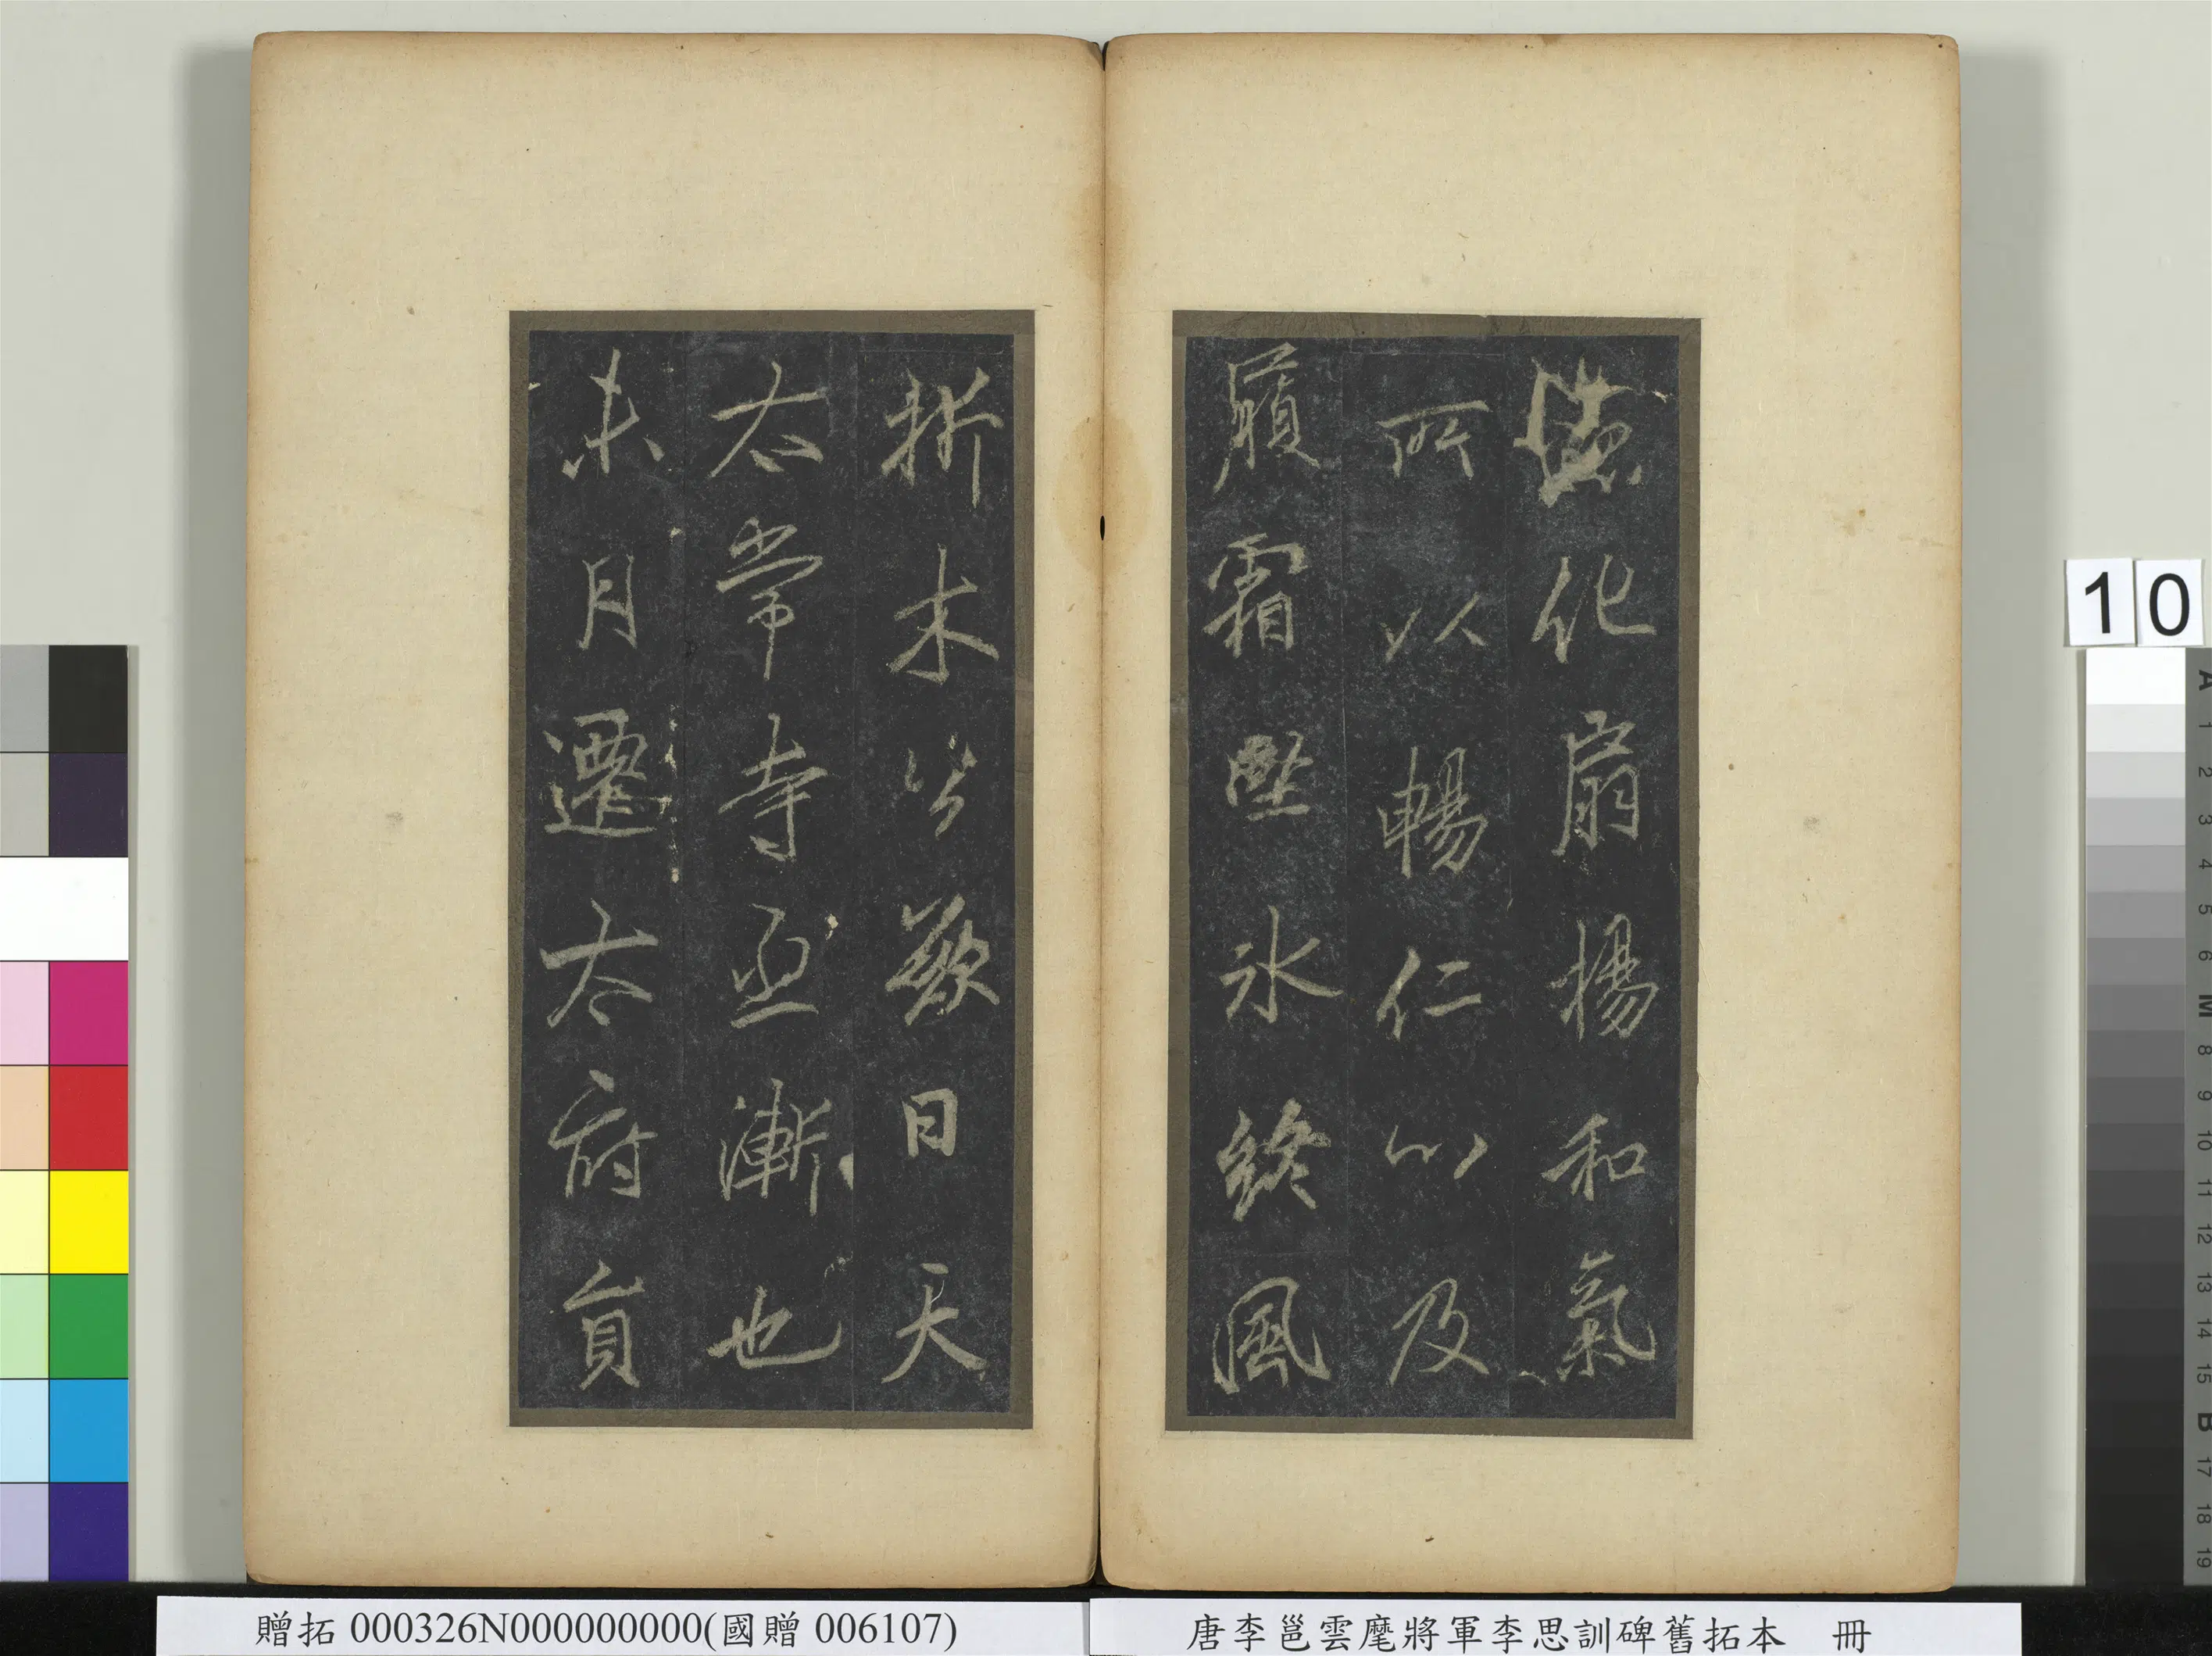 德化扇揚和氣
所以暢仁心及
履霜堅氷終風
折木公歎曰天
太常寺丞漸也
未月遷太府員
10
A 1 2 3 4 5 6 M 8 9 10 11 12 13 14 15 B 17 18 19
贈拓 000326N000000000(國贈 006107)
唐李邕雲麾將軍李思訓碑舊拓本 冊